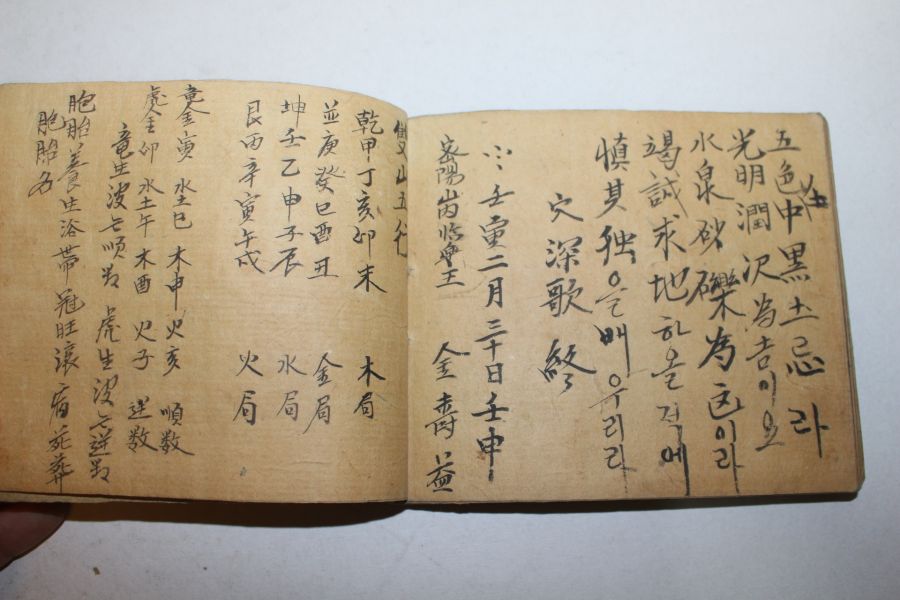 五色中黑土忌라
光明潤次為吉이요
水泉砂礫為凶이라
竭誠求地하올적에
愼其独을배우리라
穴深歌終
壬寅二月三十日壬申
密陽
金壽益
雙山五行
乾甲丁亥卯未 木局
並庚癸巳酉丑 金局
坤壬乙申子辰 水局
艮丙辛寅午戌 火局
竜金寅 水土巳 木申 火亥 順数
虎金卯 水土午 木酉 火子 逆数
竜生波 順 虎生波 逆
胞胎養生浴帶冠旺衰病死葬
胞胎名